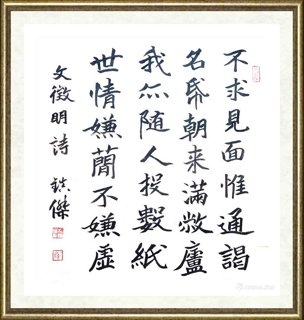 不求見面惟通謁
名帋朝来滿敝廬
我亦隨人投數紙
世情嫌簡不嫌虛
文徵明詩 鎮傑